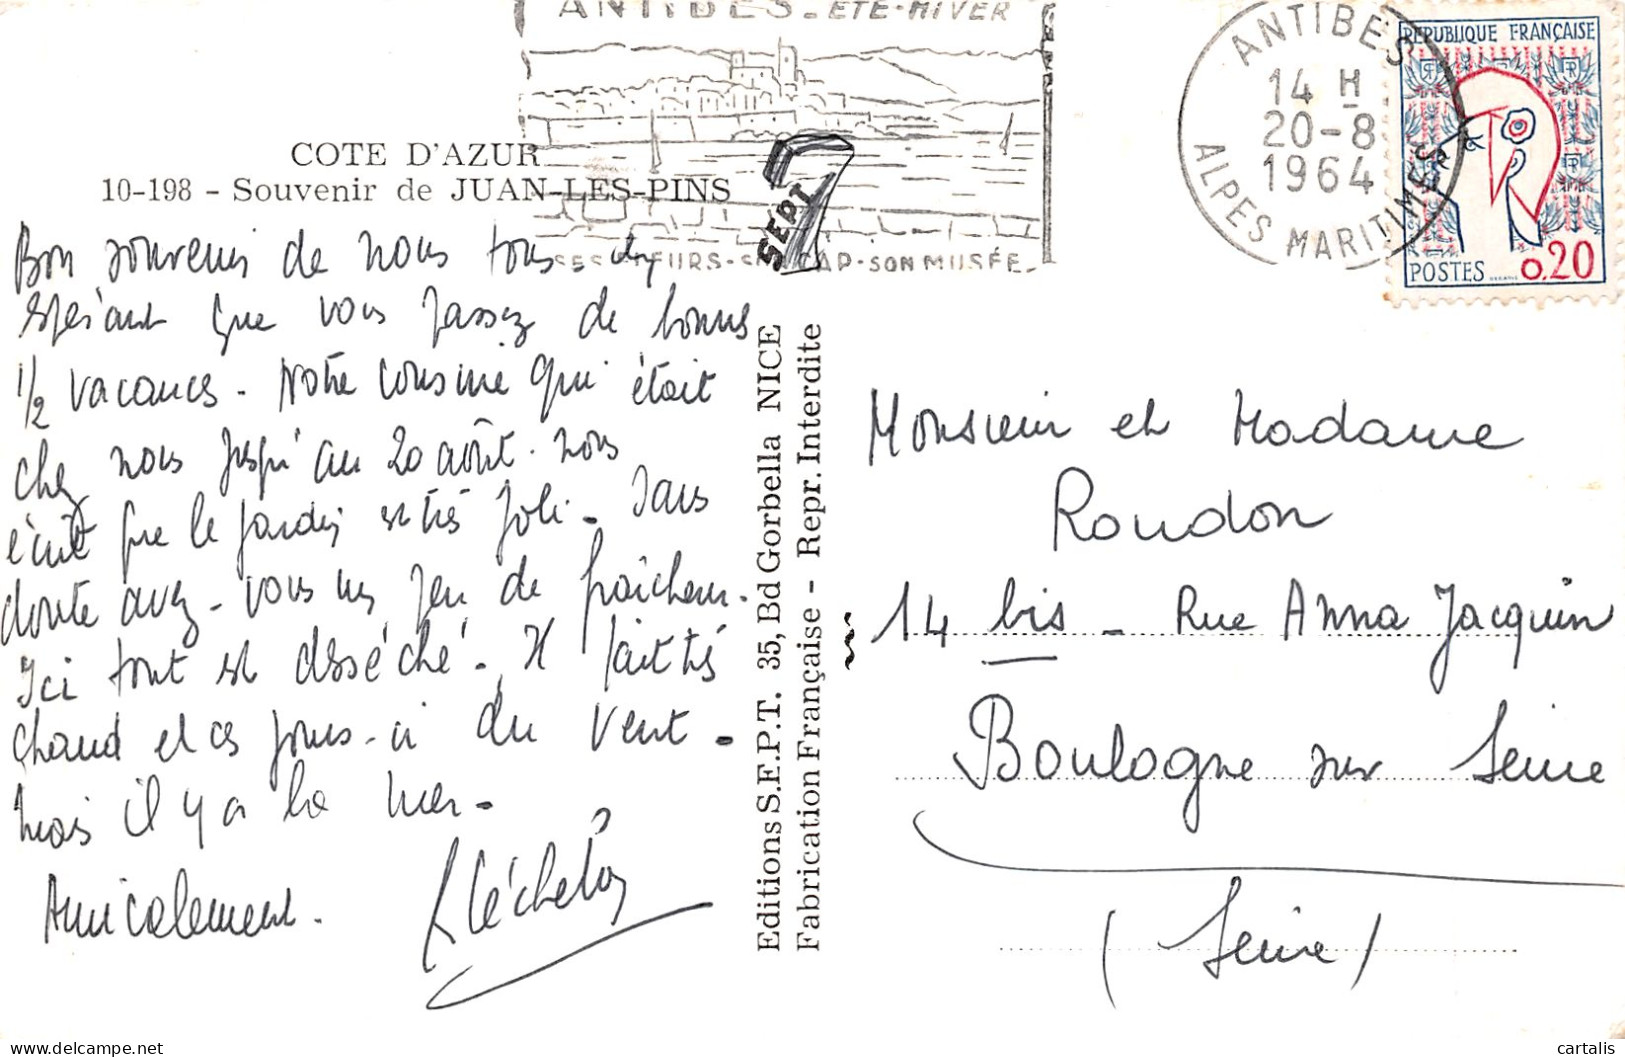 ANTIBES - ETE-HIVER
ANTIBES
14 H
20-8
1964
ALPES MARITIMES
REPUBLIQUE FRANÇAISE
POSTES
0,20
COTE D'AZUR
10-198 - Souvenir de JUAN-LES-PINS
SEPT
CAP - SON MUSÉE -
Bon souvenir de nous tous. en
espérant que vous passez de bonnes
1/2 vacances. Notre cousine qui était
chez nous jusqu'au 20 août. nous
écrit que le jardin est très joli. Sans
doute avez-vous un peu de fraîcheur.
Ici tout est desséché. Il fait très
chaud et ces jours-ci du vent.
Mais il y a la mer.
Amicalement.
Editions S.E.P.T. 35, Bd Gorbella NICE
Fabrication Française - Repr. Interdite
Monsieur et Madame
Roudon
14 bis - Rue Anna Jacquin
Boulogne sur Seine
(Seine)
cartalis